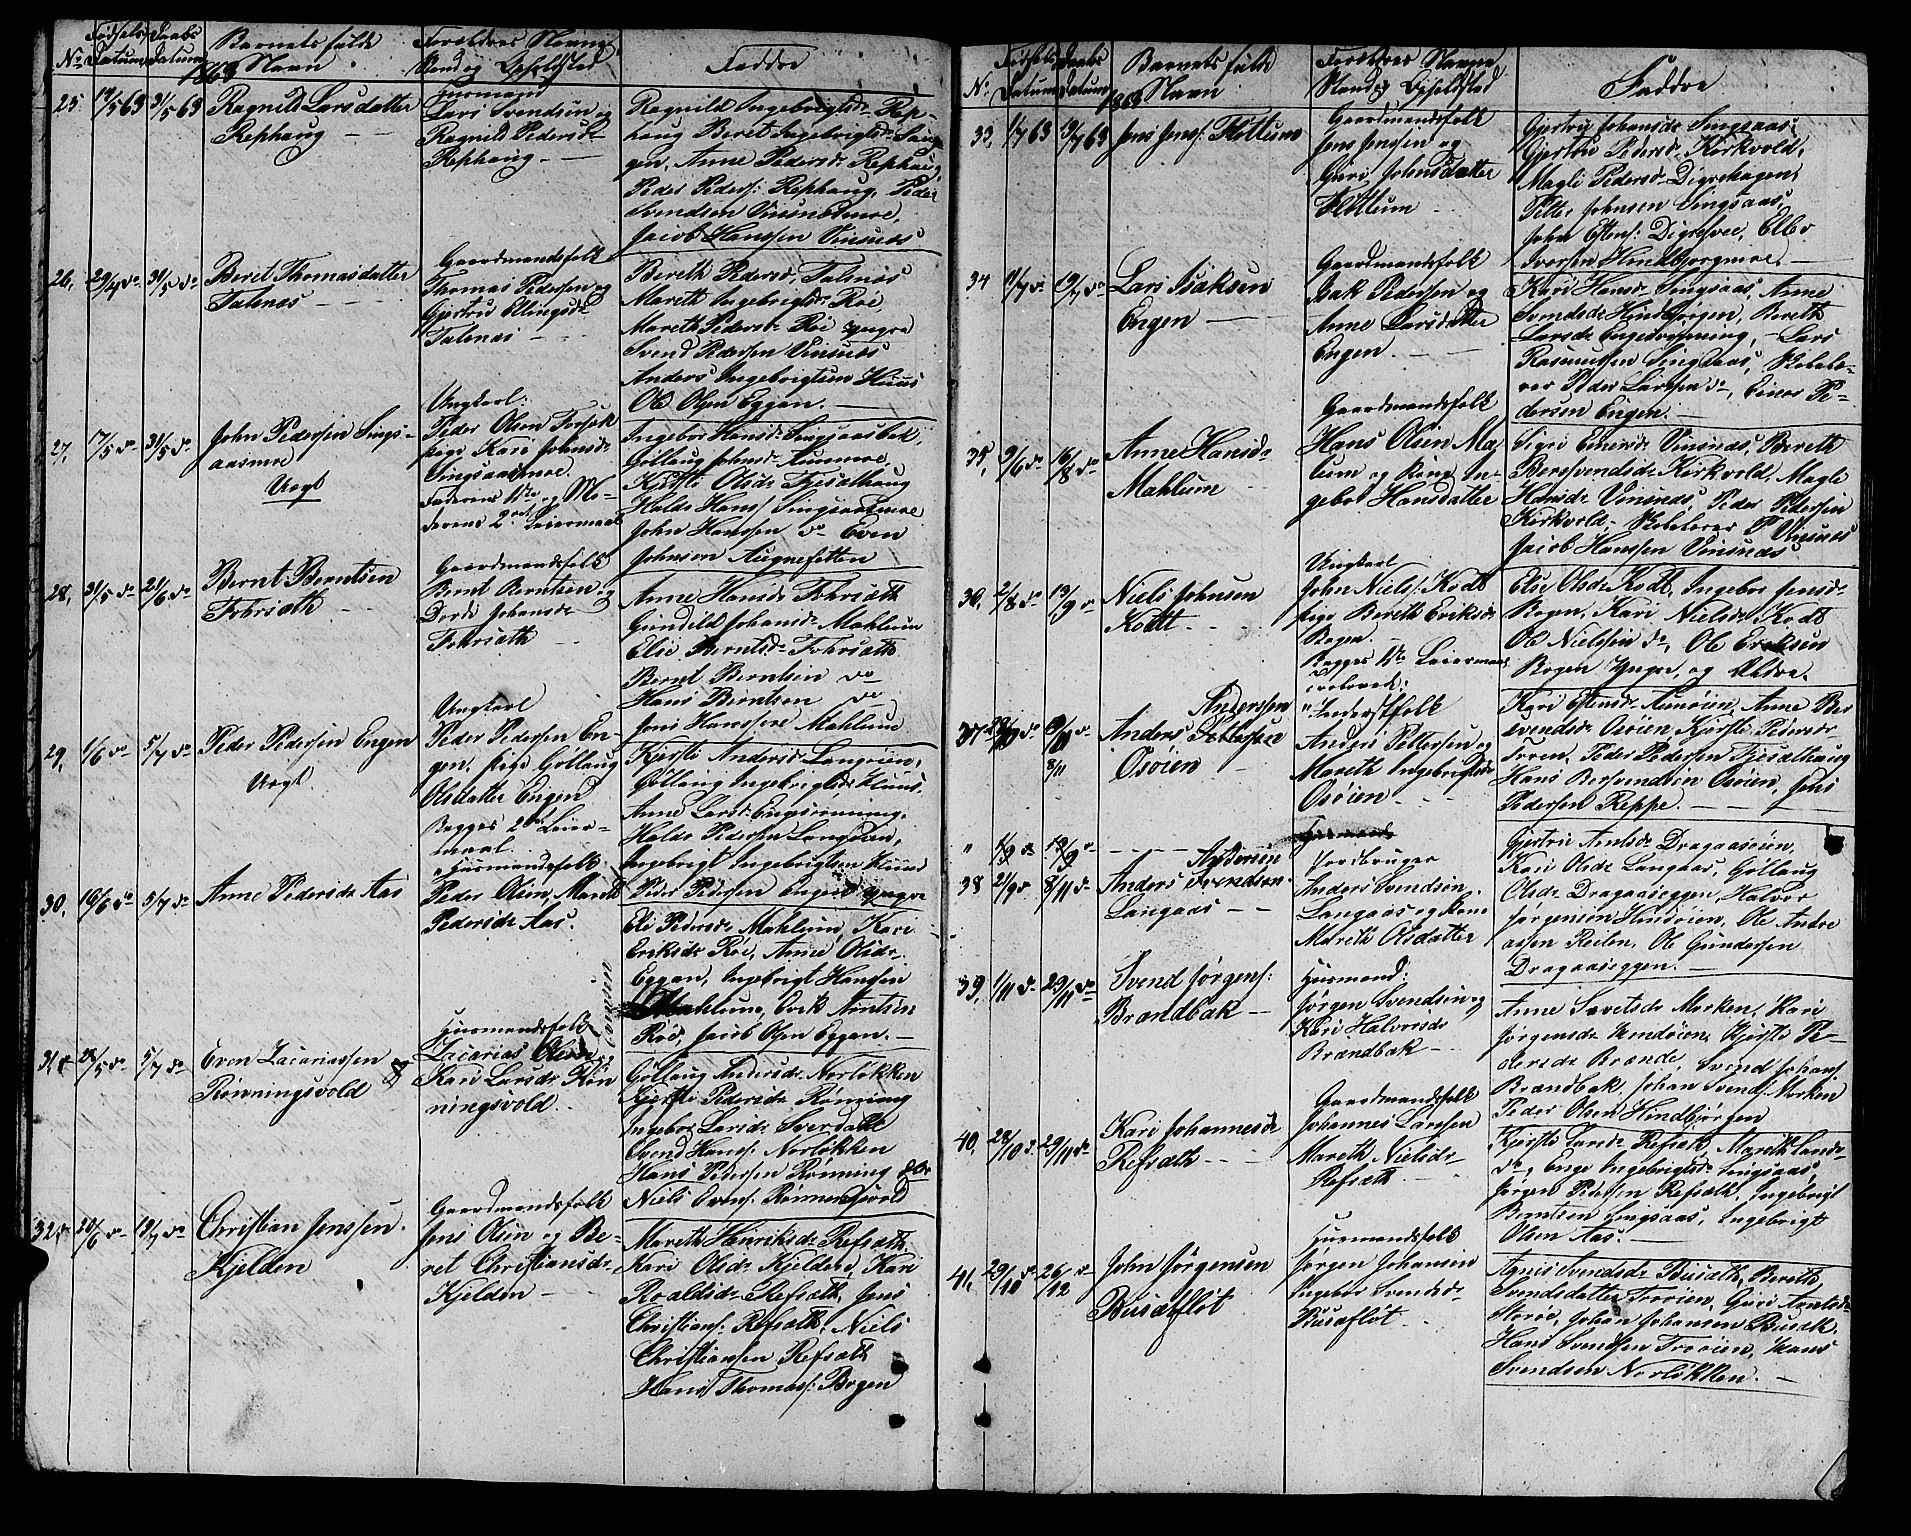 No Fødsels Datum Daabs Datum Barnets fulde Navn Forældres Navne Stand og Opholdsted Faddre
1863
25 63 31/5 63 Ragnild Larsdatter
Rephaug
Lars Svendsen og
Ragnild Pedersdr
Rephaug
Ragnild Ingebrigtsdr Rep-
haug Beret Ingebrigtsdr
gen, Anne Pedersdr Rephaug,
Peder Peders: Rephaug, Peder
Svendsen Vinsnesmoe,
Jacob Hanssen Vinsnes
26, 29/4 do 31/5 do Beret Thomasdatter
Talsnes
Gaardmandsfolk
Thomas Pedersen og
Gjertru Ellingsdr
Talsnes
Bereth Pedersd. Talsnes
Mareth Ingebrigtsdr Roe,
Mareth Pedersdr Roe yngre
Svend Pedersen Vinsnes
Anders Ingebrigtsen Huus
Ole Olsen Eggan.
27, 17/5 do 31/5 do John Pedersen Sings-
aasmoe
Uegt
Ungkarl:
Peder Olsen
pige Kari Johnsdr
Singsaasmoe.
Faderens 1ste og Mo-
derens 2det Leiermaal
Ingebor Hansdr Singsaasbak,
Göllaug Johnsdr
Kjersti Olsdr Fjeset haug
Halde Hans: Singsaasmoe
John Hanssen do Even
Johnsen Augnesetten
28, 31/5 do 21/6 do Bernt Berntsen
Fohrsæth
Gaardmandsfolk
Bernt Berntsen og
Dordi Johansdr
Fohrsæth
Anne Hansdr Fohrsæth
Gunild Johansdr Mahlum
Elie Berntsdr Fohrsæth
Bernt Berntsen do
Hans Berntsen do
Jens Hanssen Mahlum
29, 1/6 do 5/7 do Peder Pedersen Engen
Uegt.
Ungkarl
Peder Pedersen En-
gen, pige Göllaug
Olsdatter Engen
Begges 2det Leier-
maal
Kjersti Andersdr Langöien,
Göllaug Ingebrigtsdr Huus,
Anne Larsdr Engsrönning,
Halde Pedersen Langöien,
Ingebrigt Ingebrigtsen Huus
Peder Pedersen Engen yngre
30, 16/6 do 5/7 do Anne Pedersdr Aas
Huusmandsfolk
Peder Olsen, Mareth
Pedersdr Aas.
Eli Pedersdr Mahlum, Kari
Eriksdr Roe, Anne Olsdr
Eggan, Ingebrigt Hansen
Mahlum, Erik Arntsen
Roe, Jacob Olsen Eggan.
31, 28/5 do 5/7 do Even Zacariassen
Rönningsvold
Huusmandsfolk
Zacarias Olsen og
Evensen
Kari Larsdr Rön
ningsvold.
Göllaug Andersdr Norløkken
Kjersti Pedersdr Rönning
Ingebor Larsdr Sverdahl
Svend Hans: Norløkken
Hans Pedersen Rönning
Niels Evens: Rönningsvold
32, 20/6 do 19/7 do Christian Jenssen.
Kjelden
Gaardmandsfolk
Jens Olsen og Be-
ret Christiansdr
Kjelden
Mareth Henriksdr Refsæth,
Kari Olsdr Kjelden, Kari
Roaldsdr Refsæth, Jens
Christians: Refsæth, Niels
Christiansen Refsæth
Hans Thomass: Bogen
No Fødsels Datum Daabs Datum Barnets fulde Navn Forældres Navne Stand og Opholdsted Faddre
1863
33, 1/7 63 63 Jens Jens: Flottum
Gaardmandsfolk
Jens Jenssen og
Guri Johnsdatter
Flottum
Gjertru Johansdr Singsaas,
Gjertru Pedersdr Kirkvold,
Magli Pedersdr Digrehagen,
Petter Johnsen Singsaas,
John Estens: Digresvee, Ellev
Iversen Hindbjørgmoe.
34 11/7 do 19/7 do Lars Isaksen
Engen
Gaardmandsfolk
Isak Pedersen og
Anne Larsdatter
Engen.
Kari Hansdr Singsaas, Anne
Svendsdr Hindbjørgen, Bereth
Larsdr Engesrönning, Lars
Rasmussen Singsaas, Skolelæ-
rer Peder Larssen do, Einer Pe-
dersen Engen.
35, 9/6 do 16/8 do Anne Hansdr
Mahlum
Gaardmandsfolk
Hans Olsen Ma
lum og Kone In-
gebor Hansdatter
Sigri Einersdr Vinsnes, Bereth
Bersvendsdr Kirkvold, Magli
Hansdr Vinsnes, Peder Pedersen
Kirkvold, Skolelærer P Vinsnes
Jacob Hanssen Vinsnes
36, 2/8 do 13/9 do Niels Johnsen
Kodt
Ungkarl
John Niels: Kodt
pige Bereth Eriksdr
Bogen.
Begges 1ste Leiermaal
Else Olsdr Kodt, Ingebor Jensdr
Bogen, Kari Nielsdr Kodt
Ole Nielsen do, Ole Eriksen
Bogen Yngre, og Ældre.
37 8/11 Anders Pettersen
Andersen
Osøien
Inderstfolk
Anders Pettersen og
Mareth Ingebrigtsdr
Osøien
Kari Estensdr Aunøien, Anne Ber
svendsdr Osøien, Kjersti Pedersdr
Troen, Peder Pedersen Fjeset haug
Hans Bersvendsen Osøien, Jens
Pedersen Reppe.
38 2/9 do 8/11 do Anders Svendsen.
Andersen
Langaas
Jordbruger
Anders Svendsen
Langaas og Kone
Mareth Olsdatter
Gjertru Arntsdr Dragaasøien,
Kari Olsdr Langaas, Göllaug
Olsdr Dragaaseggen, Halvor
Jørgensen Hindøien, Ole Andre
assen Reilen, Ole Gundersen
Dragaaseggen.
39, 1/11 do 29/11 do Svend Jørgens:
Brændbak
Huusmand:
Jørgen Svendsen og
Kari Halvorsdr
Brændbak
Anne Sivertsdr Morken, Kari
Jørgensdr Hindøien, Kjersti Pe-
dersdr Brænde, Svend Johans:
Brændbak, Johan Svends: Morken
Peder Olsen Hindbjørgen
40, 28/10 do 29/11 do Kari Johannesdr
Refsæth
Gaardmandsfolk
Johannes Larssen
Mareth Nielsdr
Refsæth
Kjersti Larsdr Refsæth, Mareth Larsdr
do, Enge Ingebrigtsdr Singsaas,
Jørgen Pedersen Refsæth, Ingebrigt
Berntsen Singsaas, Ingebrigt
Olsen Aas.
41, 29/10 do 26/12 do John Jørgensen
Busætfløt
Huusmandsfolk
Jørgen Johansen
Ingebor Svendsdr
Busætfløt
Agnes Svendsdr Busæth, Bereth
Svendsdatter Troøien, Guri Arntsdr
Storøe, Johan Johansen Busæth,
Hans Svendsen Troøien, Hans
Svendsen Norløkken.